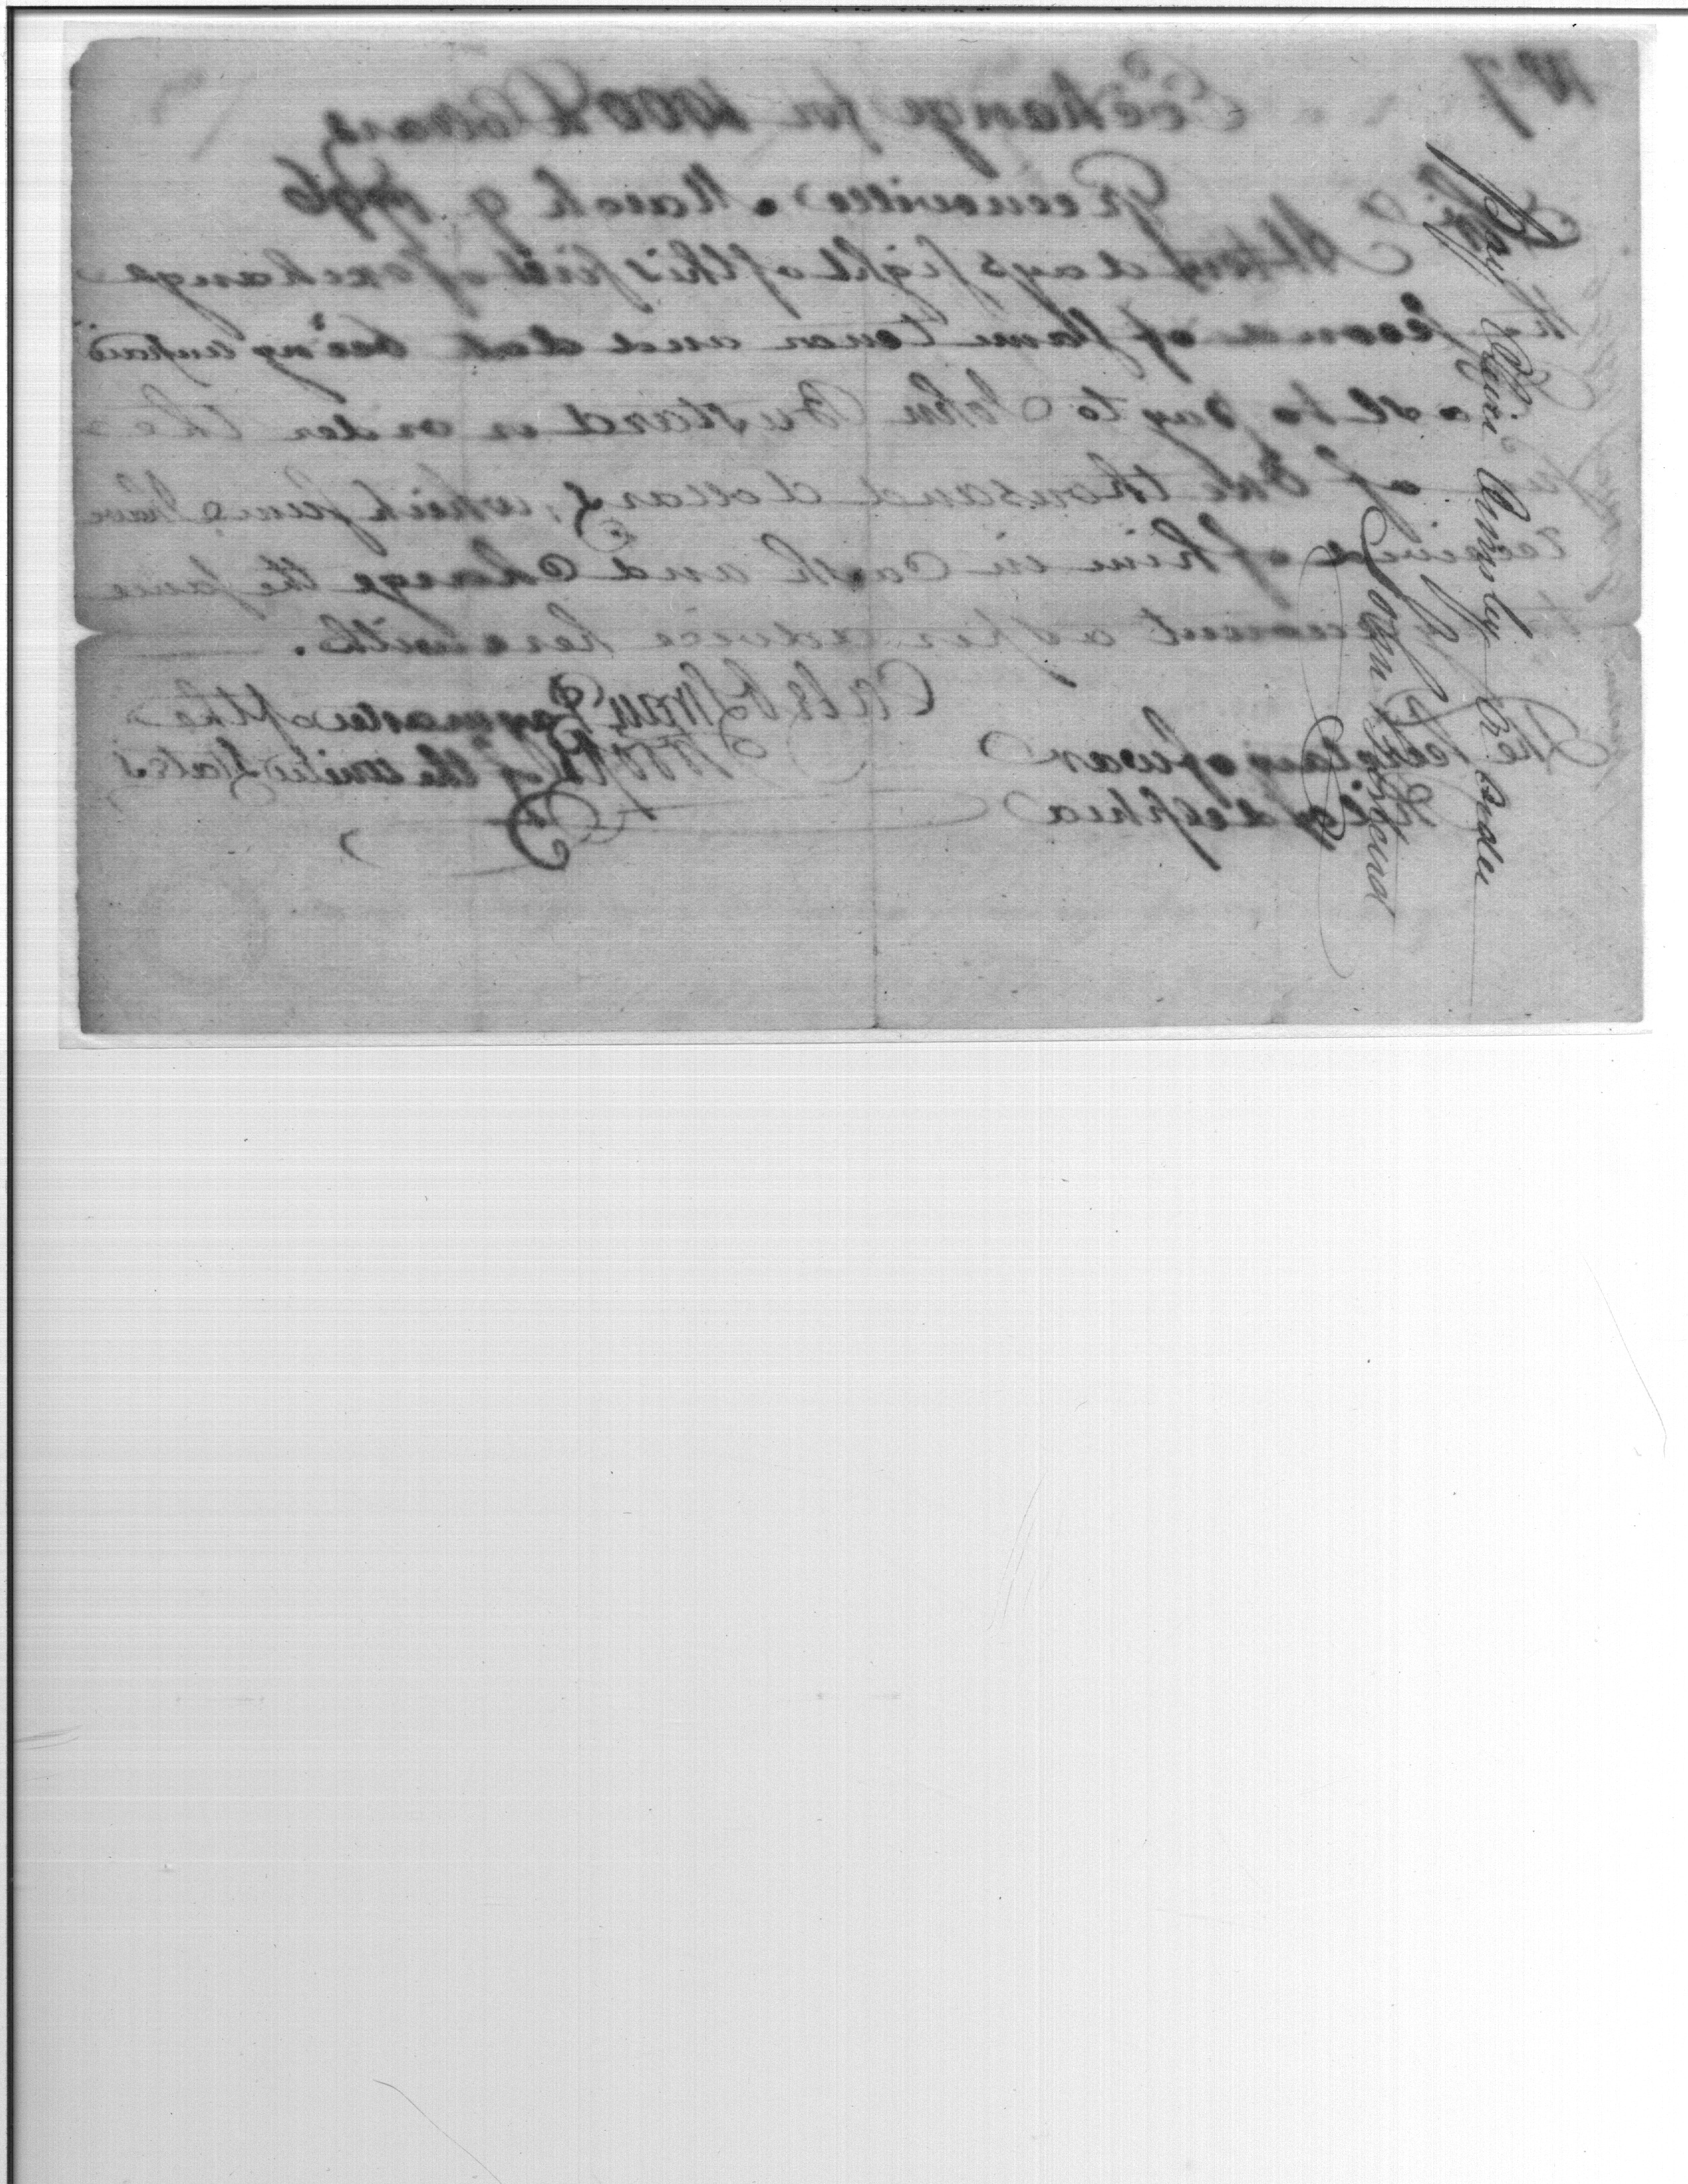 Pay Oliver Ormsby or order
John Bustard
No 7
Exchange for 1000 Dollars
Greenville March 9 1796
Sir
At ten days sight of this first of exchange
the second of same tenor and date being unpaid
please to pay to John Bustard or order the
sum of One thousand dollars, which sum I have
received of him in Cash and Charge the same
to account as per advice herewith.
Caleb Swan Paymaster of the
Troops of the United States
The Secretary of War
Philadelphia